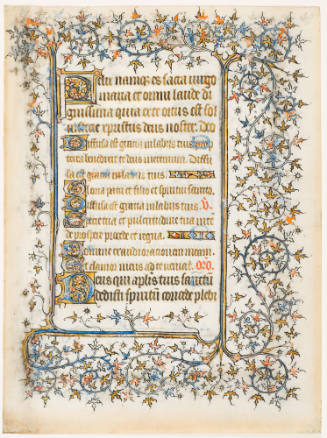 Felix namque es sacra virgo
maria et omni laude di
gnissima quia ex te ortus est sol
iusticie xpristus deus noster. Deo
Diffusa est gracia in labiis tuis
terea benedixit te deus ineternum. Diffu
sa est gracia in labiis tuis.
Gloria patri et filio et spiritui sancto.
Diffusa est gracia in labiis tuis. V.
Specie tua et pulcritudine tua inte
de prospere procede et regna.
Domine exaudi orationem meam.
Et clamor meus ad te veniat. Oro.
Deus qui aplis tuis sanctum
dedisti spiritum concede plebi